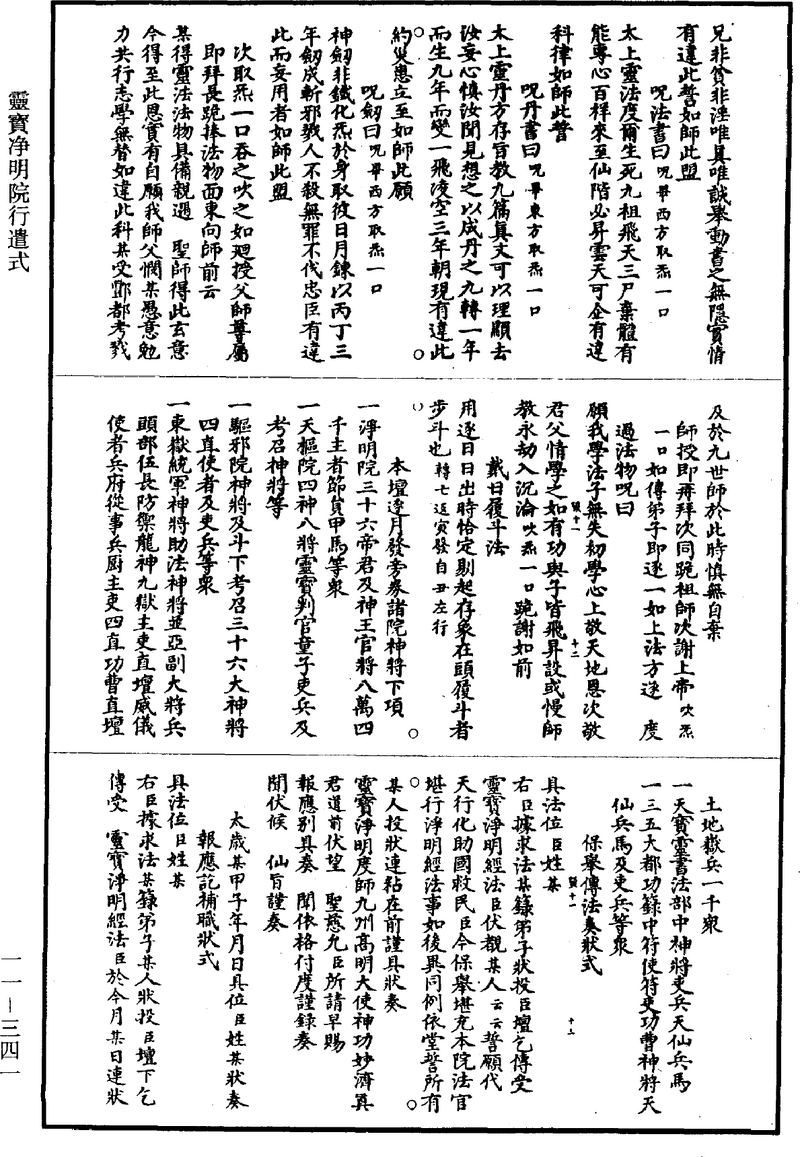 靈寶净明院行遣式
一一—三四一
兄非貧非淫唯真唯誠舉動書之無隱實情
有違此誓如師此盟
呪法書曰呪畢西方取炁一口
太上靈法度爾生死九祖飛天三尸棄骸有
能專心百祥來至仙階必昇雲天可企有違
科律如師此誓
呪丹書曰呪畢東方取炁一口
太上靈丹方存旨教九篇真文可以理顯去
汝妄心慎汝聞見想之以成丹之九轉一年
而生九年而變一飛凌空三年朝現有違此
約災患立至如師此願
呪劒曰呪畢西方取炁一口
神劒非鐵化炁於身取彼日月鍊以丙丁三
年劒成斬邪戮人不殺無罪不伐忠臣有違
此而妄用者如師此盟
次取炁一口吞之吹之如迴授父師尊屬
即拜長跪捧法物面東向師前云
某得靈法法物具備親過 聖師得此玄意
今得至此恩實有自願我師父憫某愚意勉
力共行志學無替如違此科某受酆都考戮
及於九世師於此時慎無自棄
師授即再拜次同跪祖師次謝上帝吹炁
一口如傳弟子即逐一如上法方遂 度
過法物呪曰
願我學法子無失初學心上敬天地恩次敬
君父情學之如有功與子皆飛昇設或慢師
教永劫入沉淪吹炁一口跪謝如前
戴日履斗法
用逐日日出時恰定剔起存象在頭履斗者
步斗也轉七返寅發自丑左行
本壇逐月發券諸院神將下項
一淨明院三十六帝君及神王官將八萬四
千主者節員甲馬等衆
一天樞院四神八將靈寶判官童子吏兵及
考召神將等
一驅邪院神將及斗下考召三十六大神將
四直使者及吏兵等衆
一東嶽統軍神將助法神將並亞副大將兵
頭部伍長防禦龍神九獄主吏直壇威儀
使者兵府從事兵厨主吏四直功曹直壇
土地嶽兵一千衆
一天寶靈書法部中神將吏兵天仙兵馬
一三五大都功籙中符使符吏功曹神將天
仙兵馬及吏兵等衆
保舉傳法奏狀式
具法位臣姓某
右臣據求法某籙弟子狀投臣壇乞傳受
靈寶淨明經法臣伏覩某人云云誓願代
天行化助國救民臣今保舉堪充本院法官
堪行淨明經法事如後異同例依堂誓所有
某人投狀連粘在前謹具狀奏
靈寶淨明度師九州高明大使神功妙濟真
君道前伏望 聖慈允臣所請早賜
報應别具奏 聞依格付度謹録奏
聞伏候 仙旨謹奏
太歲某甲子年月日具位臣姓某狀奏
報應訖補職狀式
具法位臣姓某
右臣據求法某籙弟子某人狀投臣壇下乞
傳受 靈寶淨明經法臣於今月某日連狀